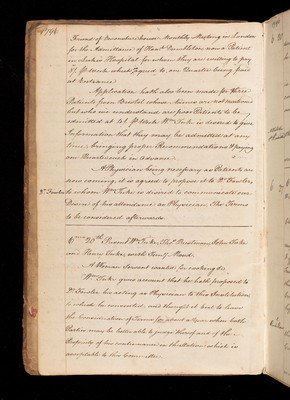 1796
Friend of Devonshire house Monthly Meeting in London
for the Admittance of Hanh. Dumbleton now a Patient
in Luke's Hospital for whom they are willing to pay
8/. pr. Week which I agreed to one Quarter being paid
at Entrance
Application hath also been made for three
Patients from Bristol whose Names are not mentioned
but who we understand are poor Patients to be
admitted at 4/. pr. Week Wm. Tuke is desired to give
Information that they may be admitted at any
time, bringing proper Recommendations & paying
one Quarters each in Advance.
A Physician being necessary as Patients are
soon coming, it is agreed to propose it to Dr. Fowler,
to whom Wm. Tuke is desired to communicate our
Desire of his attendance as Physician The Terms
to be considered afterwards
6mo. 20th Present Wm. Tuke, Thos. Priestman, John Tuke
and Henry Tuke, with Timy. Maud.
A Woman Servant wanted for cooking &c
Wm. Tuke gives account that he hath proposed to
Dr. Fowler his acting as Physician to this Institution
to which he consented, and thought it best to leave
the Consideration of Terms for about a Year when both
Parties may be better able to judge thereof and of the
Propriety of his continuance in the Station which is
acceptable to this Committee